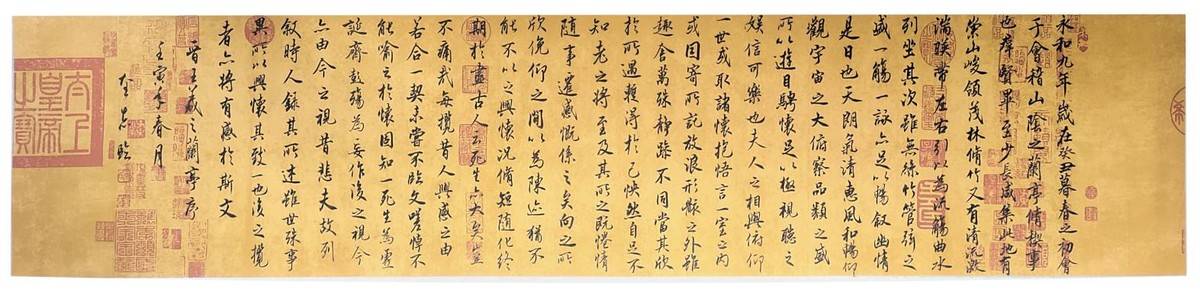 永和九年歲在癸丑暮春之初會
于會稽山陰之蘭亭脩禊事
也群賢畢至少長咸集此地有
崇山峻領茂林脩竹又有清流激
湍暎帶左右引以為流觴曲水
列坐其次雖無絲竹管弦之
盛一觴一詠亦足以暢敘幽情
是日也天朗氣清惠風和暢仰
觀宇宙之大俯察品類之盛
所以遊目騁懷足以極視聽之
娛信可樂也夫人之相與俯仰
一世或取諸懷抱悟言一室之內
或因寄所託放浪形骸之外雖
趣舍萬殊靜躁不同當其欣
於所遇蹔得於己怏然自足不
知老之將至及其所之既惓情
隨事遷感慨係之矣向之所
欣俛仰之間以為陳迹猶不
能不以之興懷況脩短隨化終
期於盡古人云死生亦大矣豈
不痛哉每攬昔人興感之由
若合一契未嘗不臨文嗟悼不
能喻之於懷固知一死生為虛
誕齊彭殤為妄作後之視今
亦由今之視昔悲夫故列
敘時人錄其所述雖世殊事
異所以興懷其致一也後之攬
者亦將有感於斯文
晉王羲之蘭亭序
壬寅年春月
臨
太上
皇帝
之寶